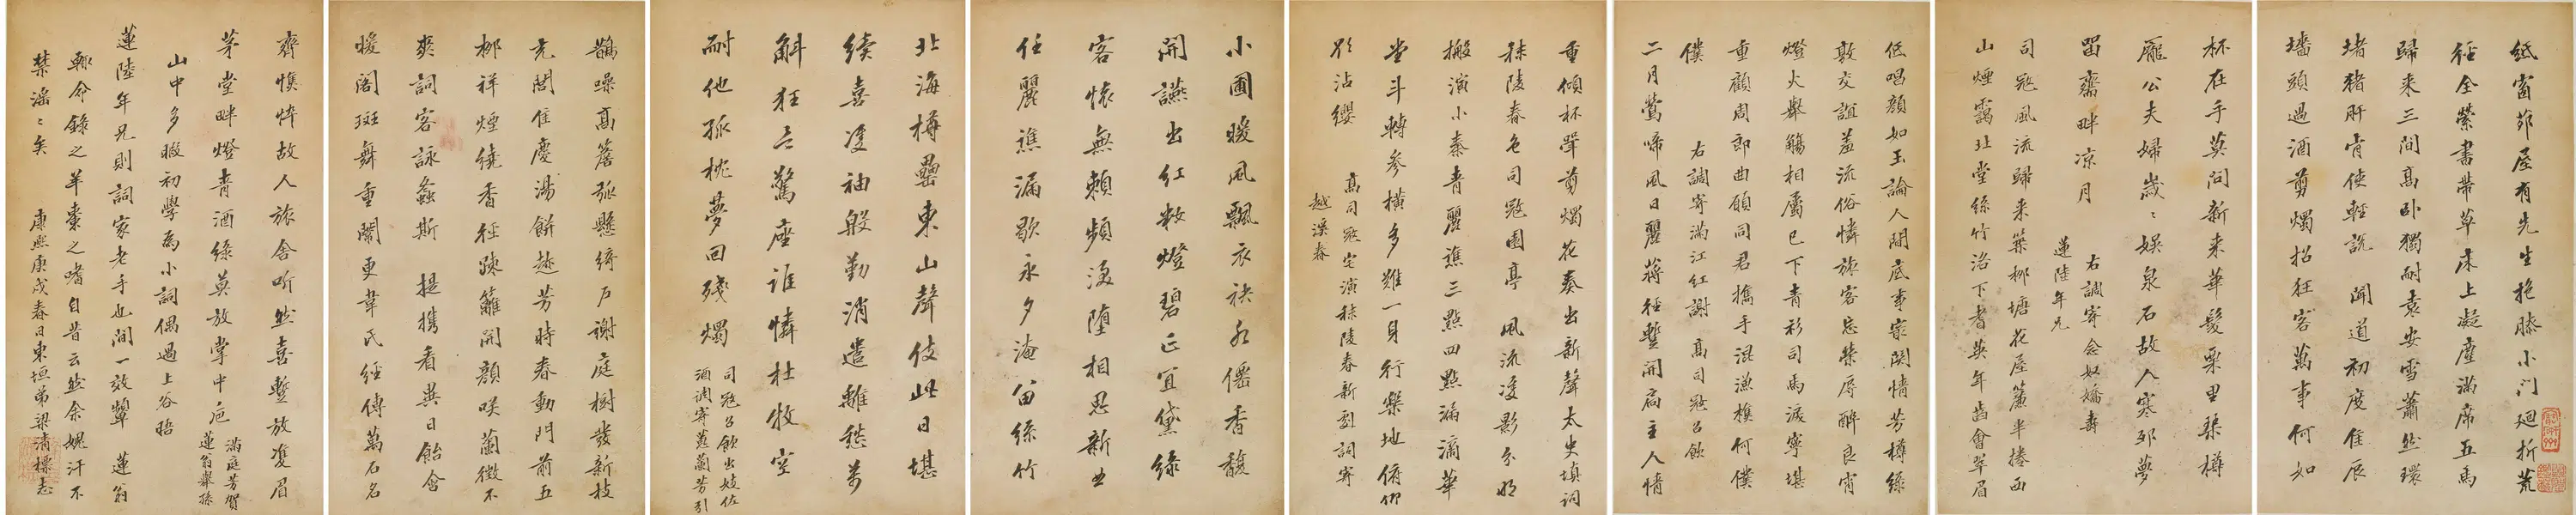 紙窗茆屋有先生抱膝小门廻折荒
徑全縈書帶草床上凝塵滿席五馬
歸来三間高卧獨耐袁安雪蕭然環
堵豬肝肯使輕説 聞道初度佳辰
墻頭過酒剪燭招狂客萬事何如
杯在手莫问新来華髮栗里琴樽
龐公夫婦歲〻娱泉石故人寒夜夢
留齋畔凉月
右調寄念奴嬌壽
蓮陸年兄
司寇風流歸来築柳塘花屋簾半捲西
山煙靄北堂絲竹洛下耆英年齒會翠眉
低唱顔如玉論人間底事最關情芳樽綠
敦交誼羞流俗憐旅客忘榮辱醉良宵
燈火舉觴相屬已下青衫司馬淚寧堪
重顧周郎曲願同君攜手混漁樵何僕
僕
右調寄滿江紅謝 高司寇召飲
二月鶯啼風日麗蔣徑蹔開扃主人情
重傾杯聲剪燭花奏出新聲太史填詞
秣陵春色司寇園亭 風流凌影分明
搬演小秦青麗譙三點四點漏滴華
堂斗轉參橫多難一身行樂地俯仰
欲沾纓
高司寇宅演秣陵春新劇詞寄
越溪春
小圃暖風飄衣袂元僊香馥
開讌出紅妝燈碧正宜黛綠
客懷無賴頻復墮相思新曲
任麗譙漏歇永夕淹留絲竹
北海樽罍東山聲伎此日堪
續喜凌袖殷勤消遣離愁萬
斛狂言驚座誰憐杜牧空
耐他孤枕夢回殘燭
司寇召飲出妓佐
酒调寄蕙蘭芳引
鵲噪高簷弧懸綺戶謝庭樹發新枝
充閭佳慶湯餅趁芳時春動門前五
柳祥煙繞香徑疎籬開顔咲蘭徵不
爽詞客詠螽斯 提攜看異日飴含
暖閣斑舞重闈更韋氏經傳萬石名
齊憔悴故人旅舍听然喜蹔放雙眉
茅堂畔燈青酒綠莫放掌中卮
滿庭芳賀
蓮翁舉孫
山中多暇初學爲小詞偶過上谷晤
蓮陸年兄則詞家老手也間一效顰 蓮翁
輒命錄之羊棗之嗜自昔云然余媿汗不
禁滛〻矣 康熙庚戌春日東垣弟梁清標志